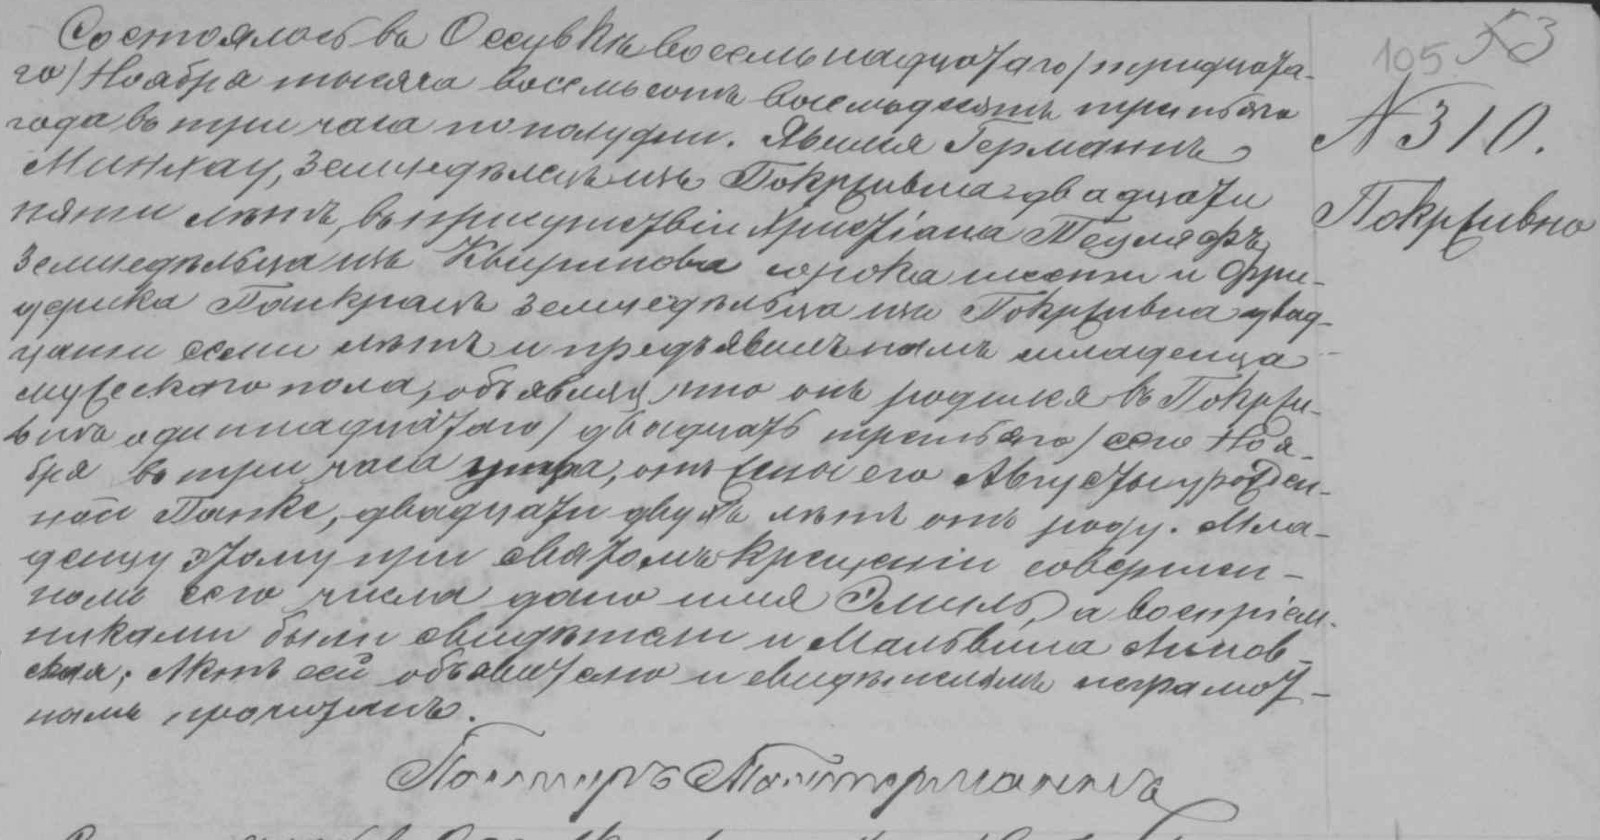 105 53
№ 310.
Покрживно
Состоялось въ Оссувкѣ восемьнадцатаго /тридцата-
го/ Ноября тысяча восемьсотъ восемьдесятъ третьяго
года въ три часа пополудни. Явился Германнъ
земледѣлецъ изъ Покрживна двадцати
пяти лѣтъ, въ присутствіи Христіана
земледѣльца изъ сорока шести и Фри-
дерика Панкрацъ земледѣльца изъ Покрживна двад-
цати семи лѣтъ и предъявилъ намъ младенца
мужескаго пола, объявляя что онъ родился въ Покржи-
внѣ одиннадцатаго / двадцать третьяго / сего Ноя-
бря въ три часа утра, отъ жены его Августы урожден-
ной Панке, двадцати двухъ лѣтъ отъ роду. Мла-
денцу этому при святомъ крещеніи совершен-
номъ сего числа дано имя Эмиль, а воспріем-
никами были свидѣтели и Мальвина Липов-
ская; Актъ сей объявителю и свидѣтелямъ неграмот-
нымъ прочитанъ.
Пасторъ